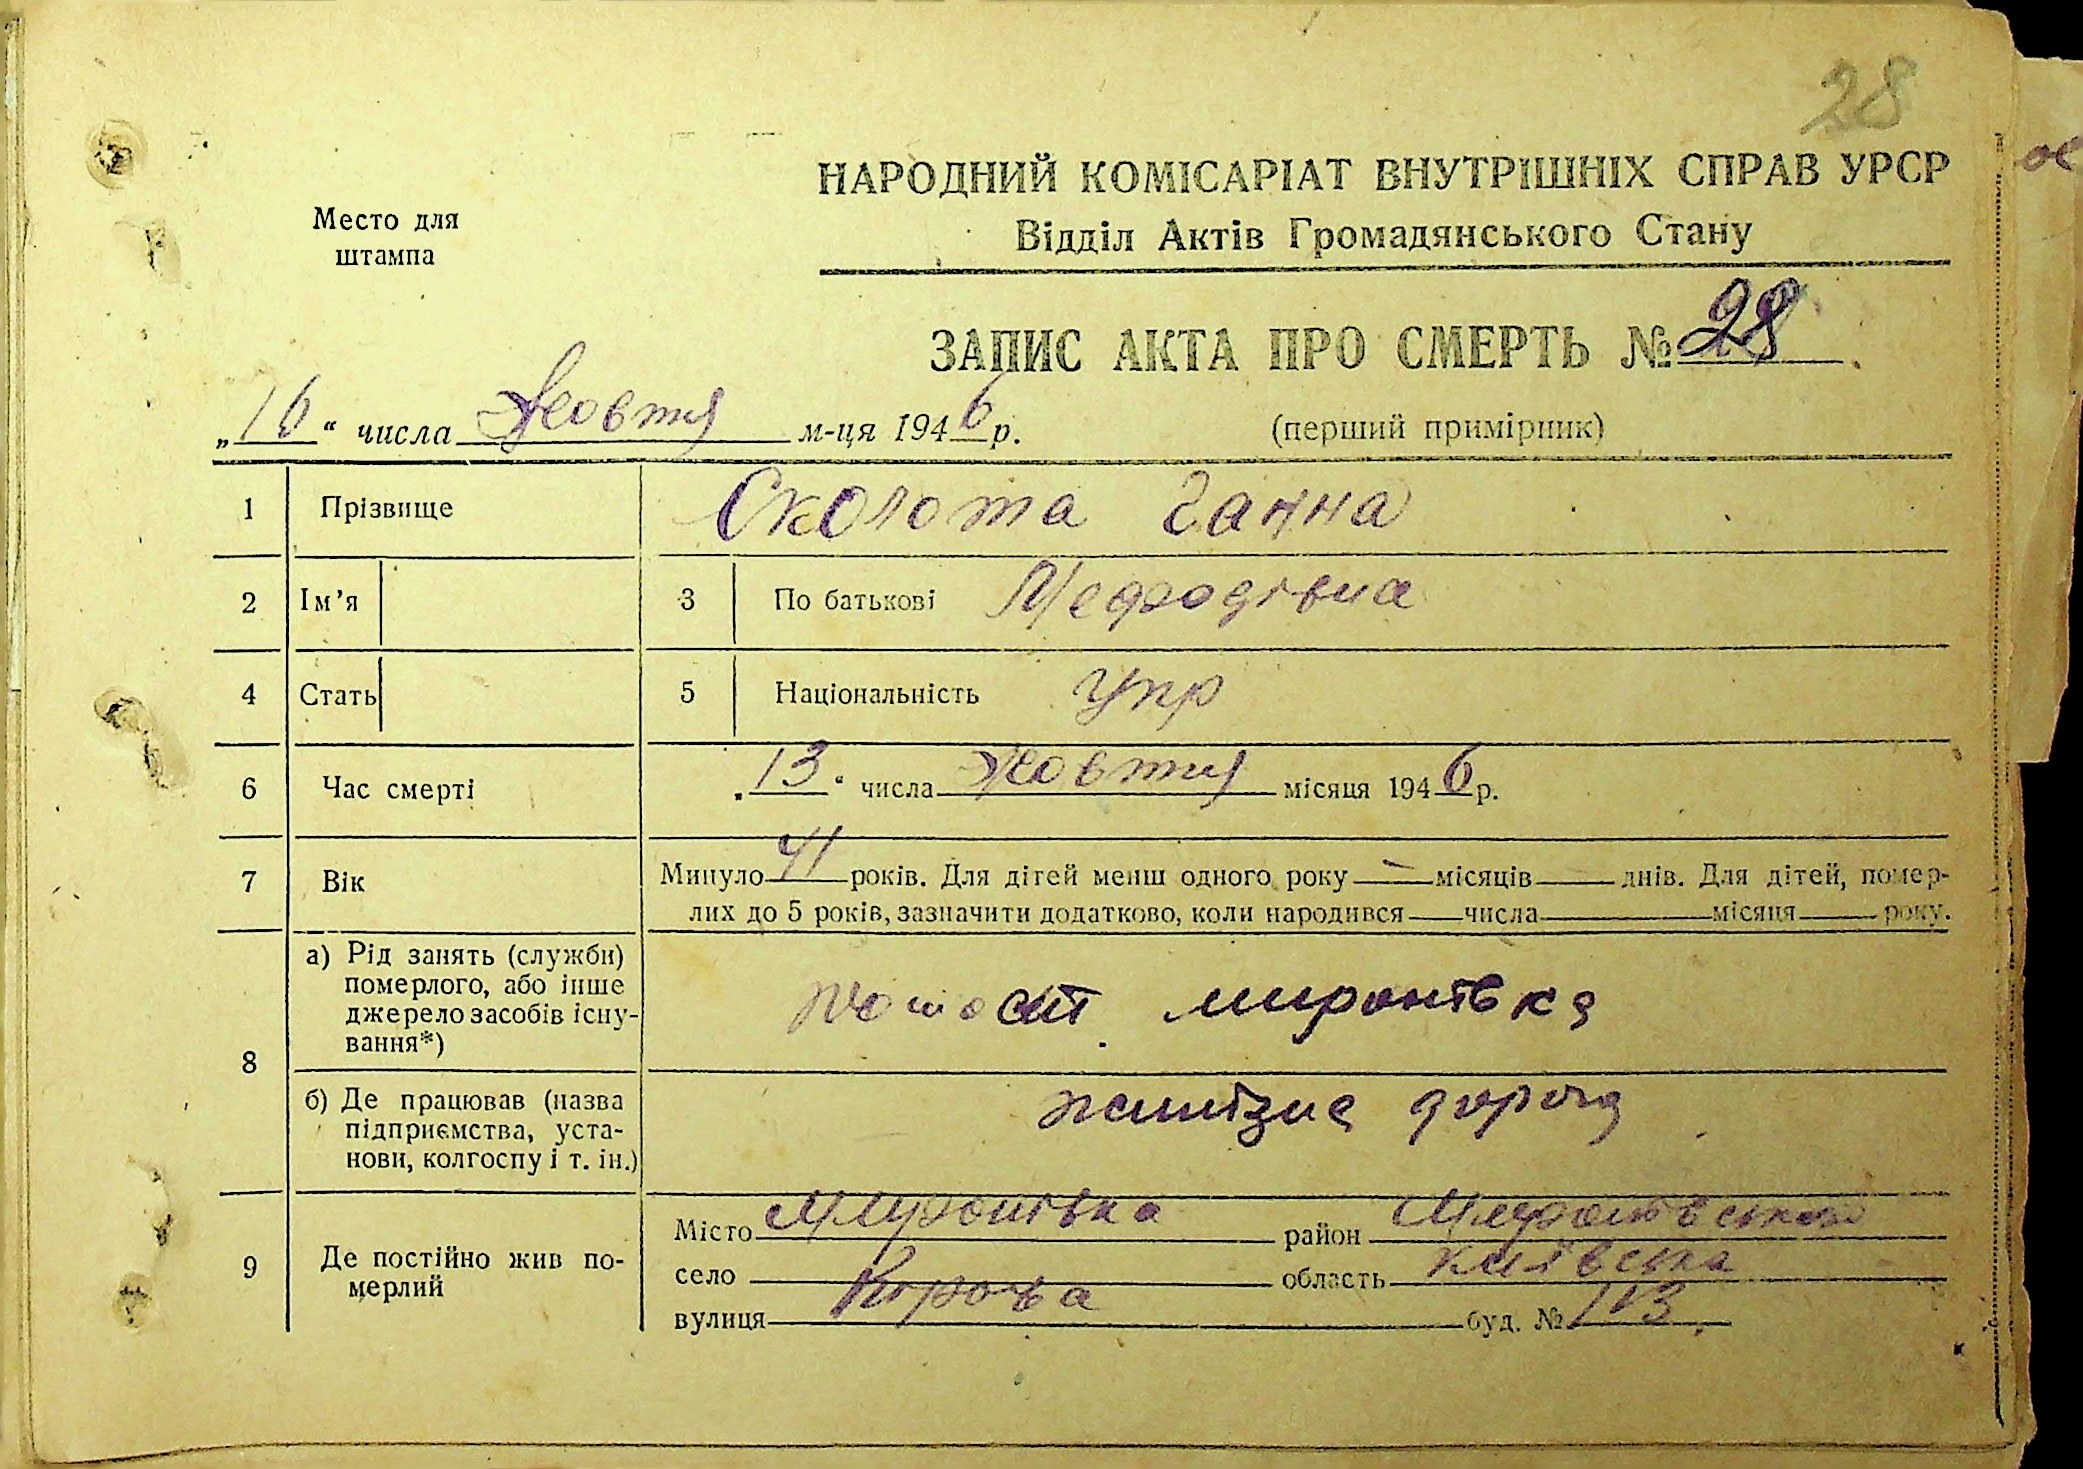 28
НАРОДНИЙ КОМІСАРІАТ ВНУТРІШНІХ СПРАВ УРСР
Відділ Актів Громадянського Стану
Место для
штампа
ЗАПИС АКТА ПРО СМЕРТЬ № 28
„16“ числа Жовтня м-ця 1946 р. (перший примірник)
1 Прізвище Сколота Ганна
2 Ім'я 3 По батькові Мефодівна
4 Стать 5 Національність Укр
6 Час смерті „13“ числа Жовтня місяця 1946 р.
7 Вік Минуло 41 років. Для дітей менш одного року — місяців днів. Для дітей, помер-
лих до 5 років, зазначити додатково, коли народився числа місяця року.
8 а) Рід занять (служби)
померлого, або інше
джерело засобів існу-
вання*)
миронівка
б) Де працював (назва
підприємства, уста-
нови, колгоспу і т. ін.)
дорога
9 Де постійно жив по-
мерлий
Місто Миронівка район Миронівський
село область Київська
вулиця буд. № 113